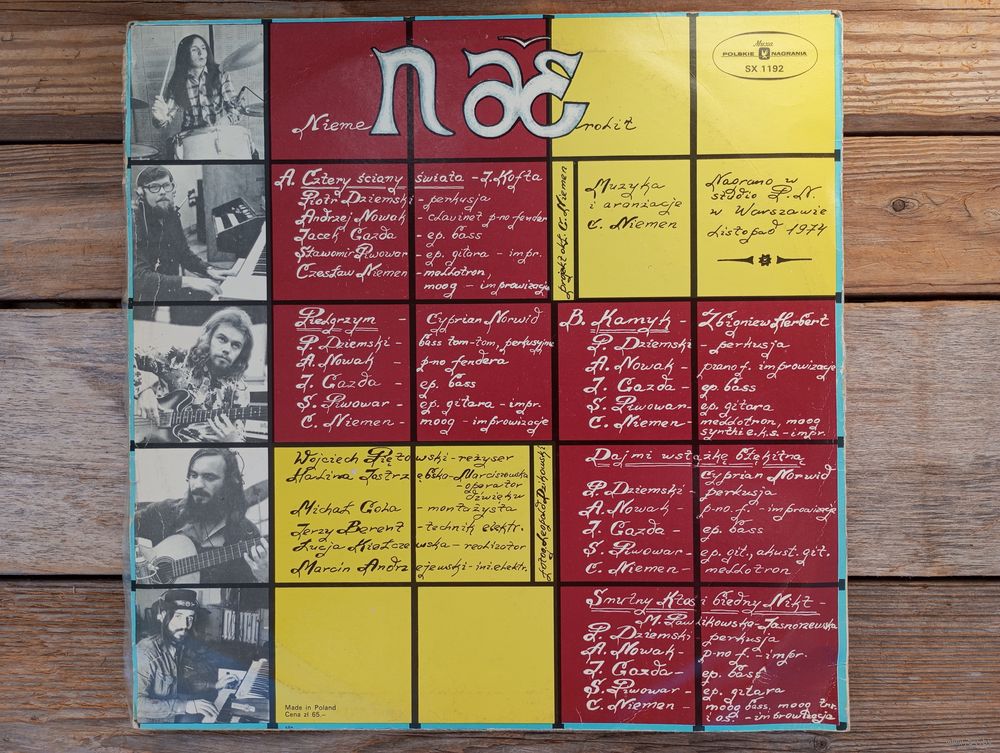 n ae
Muza
POLSKIE NAGRANIA
SX 1192
Nieme robił
A. Cztery ściany świata - J. Kofta
Piotr Dziemski - perkusja
Andrzej Nowak - clavinet p-no fender
Jacek Gazda - ep. bass
Sławomir Piwowar - ep. gitara - impr.
Czesław Niemen - mellotron,
moog - improwizacje
projekt ok. C. Niemen
Muzyka
i aranżacje
C. Niemen
Nagrano w
studio P.N.
w Warszawie
listopad 1974
Pielgrzym - Cyprian Norwid
P. Dziemski - bass tom-tom, perkusyjne
A. Nowak - p-no fendera
J. Gazda - ep. bass
S. Piwowar - ep. gitara - impr.
C. Niemen - moog - improwizacje
B. Kamyk - Zbigniew Herbert
P. Dziemski - perkusja
A. Nowak - piano f. improwizacje
J. Gazda - ep. bass
S. Piwowar - ep. gitara
C. Niemen - mellotron, moog
synthi e.k.s. - impr.
Wojciech Piętowski - reżyser
Halina Jastrzębska-Marciszewska
- operator
dźwięku
Michał Gola - montażysta
Jerzy Berent - technik elektr.
Łucja Kiełczewska - realizator
Marcin Andrzejewski - inż. elektr.
fotog. Leopold Dzikowski
Daj mi wstążkę błękitną
Cyprian Norwid
P. Dziemski - perkusja
A. Nowak - p-no. f. - improwizacje
J. Gazda - ep. bass
S. Piwowar - ep. git., akust. git.
C. Niemen - mellotron
Smutny Ktoś i biedny Nikt -
M. Pawlikowska-Jasnorzewska
P. Dziemski - perkusja
A. Nowak - p-no f. - impr.
J. Gazda - ep. bass
S. Piwowar - ep. gitara
C. Niemen - moog bass, moog
i - improwizacja
Made in Poland
Cena zł 65.–